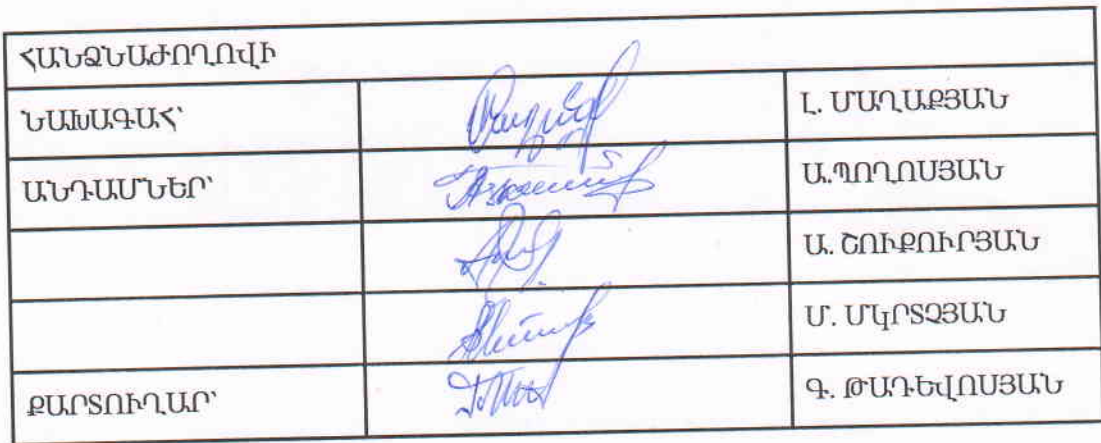 ՀԱՆՁՆԱԺՈՂՈՎԻ
ՆԱԽԱԳԱՀ՝ Լ. ՄԱՂԱՔՅԱՆ
ԱՆԴԱՄՆԵՐ՝ Ա.ՊՈՂՈՍՅԱՆ
Ա. ՇՈՒՔՈՒՐՅԱՆ
Մ. ՄԿՐՏՉՅԱՆ
ՔԱՐՏՈՒՂԱՐ՝ Գ. ԹԱԴԵՎՈՍՅԱՆ